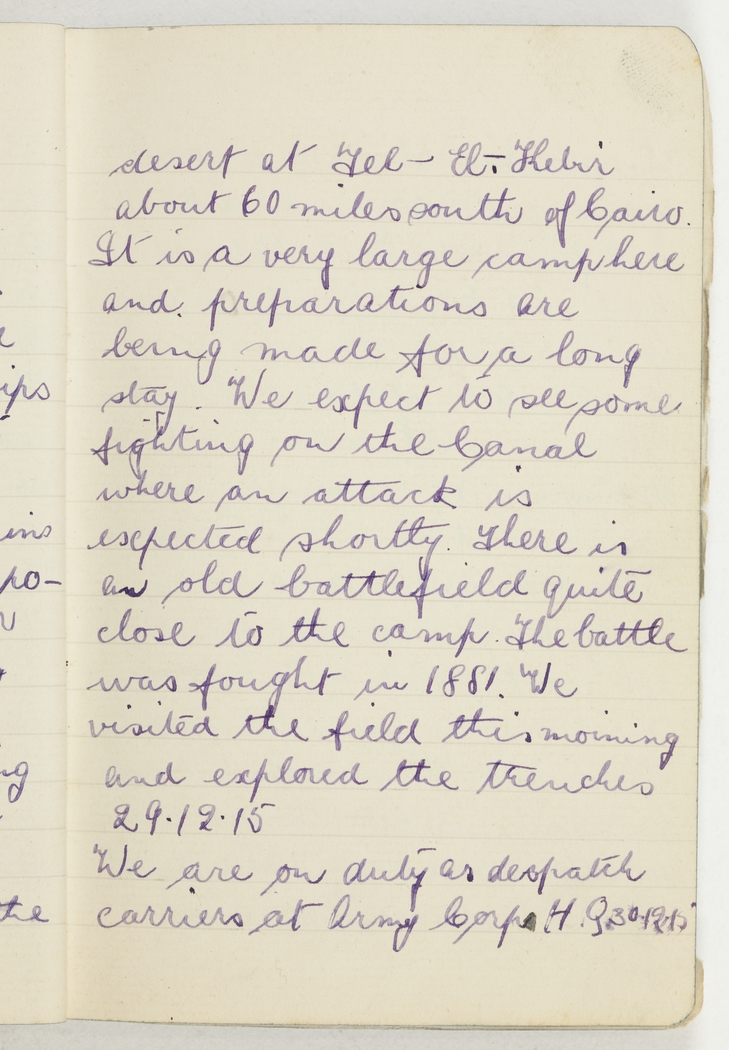 desert at Tel-El-Kebir
about 60 miles south of Cairo.
It is a very large camp here
and preparations are
being made for a long
stay. We expect to see some
fighting on the Canal
where an attack is
expected shortly. There is
an old battlefield quite
close to the camp. The battle
was fought in 1881. We
visited the field this morning
and explored the trenches
29.12.15
We are on duty as despatch
carriers at Army Corps H.Q. 30.12.15
ips
ins
po-
ng
the